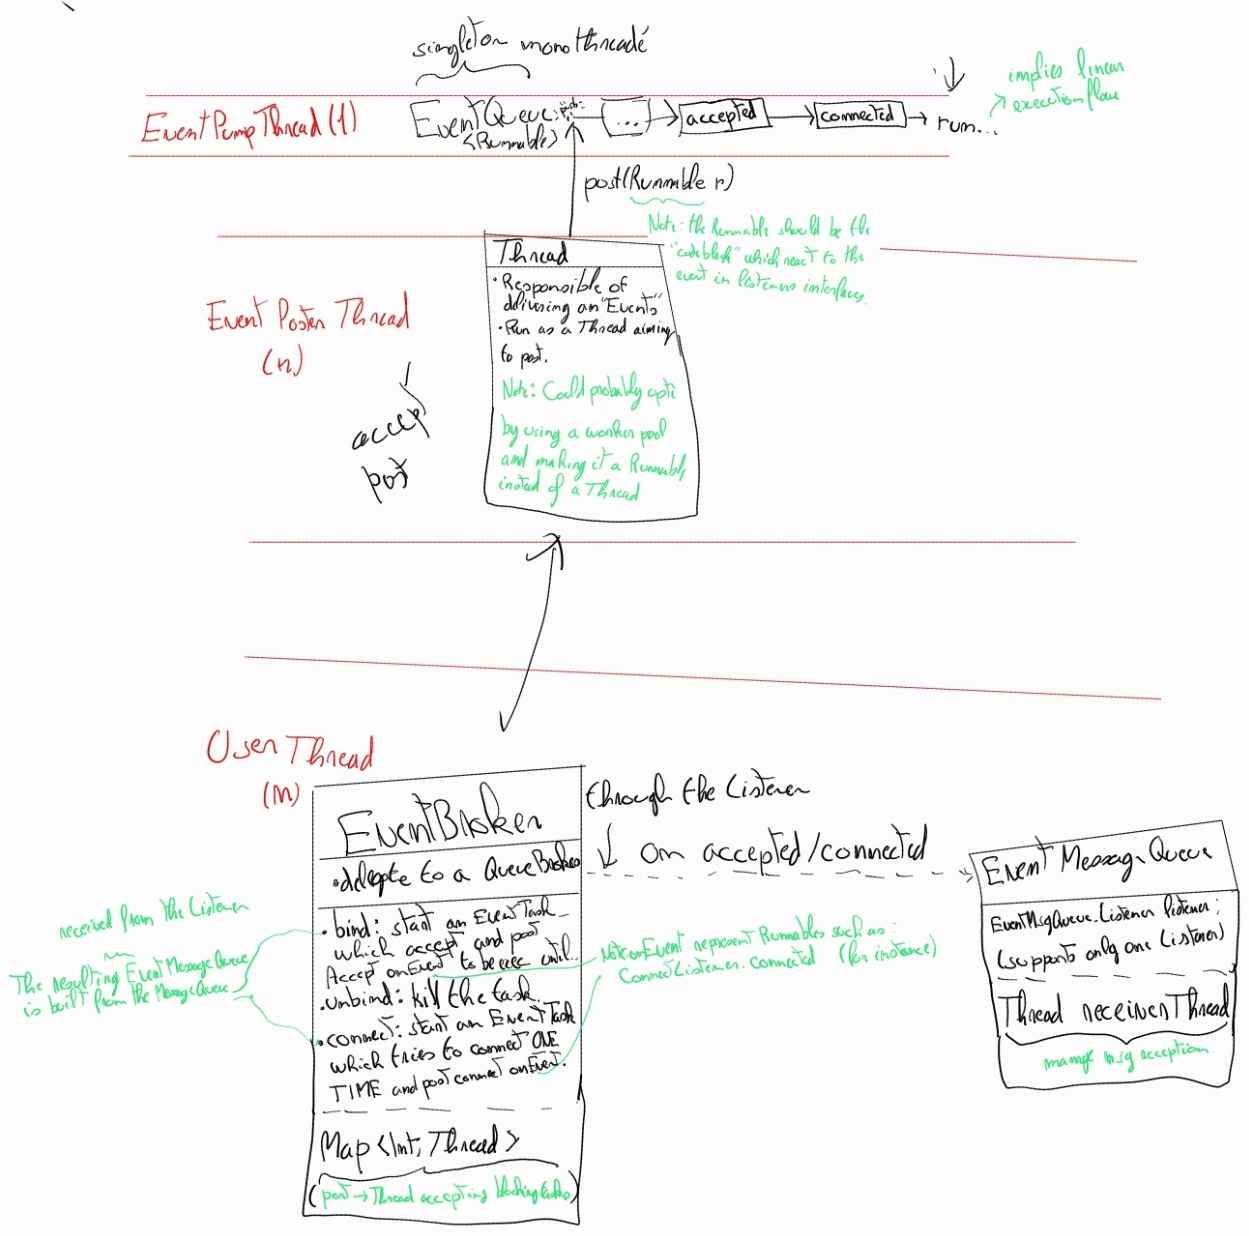 singleton monothreadé
implies linear
execution flow
EventPumpThread (1)
EventQueue
<Runnable>
...
accepted
connected
run...
post(Runnable r)
Note: the Runnable should be the
"codeblock" which react to the
event in listeners interfaces.
Thread
• Responsible of
delivering an "Events"
• Run as a Thread aiming
to post.
Note: Could probably opti
by using a worker pool
and making it a Runnable
instead of a Thread
Event Poster Thread
(n)
accep
post
User Thread
(m)
EventBroker
• delegate to a QueueBroker
• bind: start an EventTask
which accept and post
Accept onEvent to be exec until..
• unbind: kill the task.
• connect: start an EventTask
which tries to connect ONE
TIME and post connect onEvent.
Map <Int, Thread>
(port → Thread accepting blocking tasks)
received from the Listener
The resulting EventMessageQueue
is built from the MessageQueue
through the Listener
on accepted/connected
Note: onEvent represent Runnables such as:
ConnectListener.connected (for instance)
Event MessageQueue
EventMsgQueue.Listener listener;
(supports only one Listener)
Thread receiverThread
manage msg